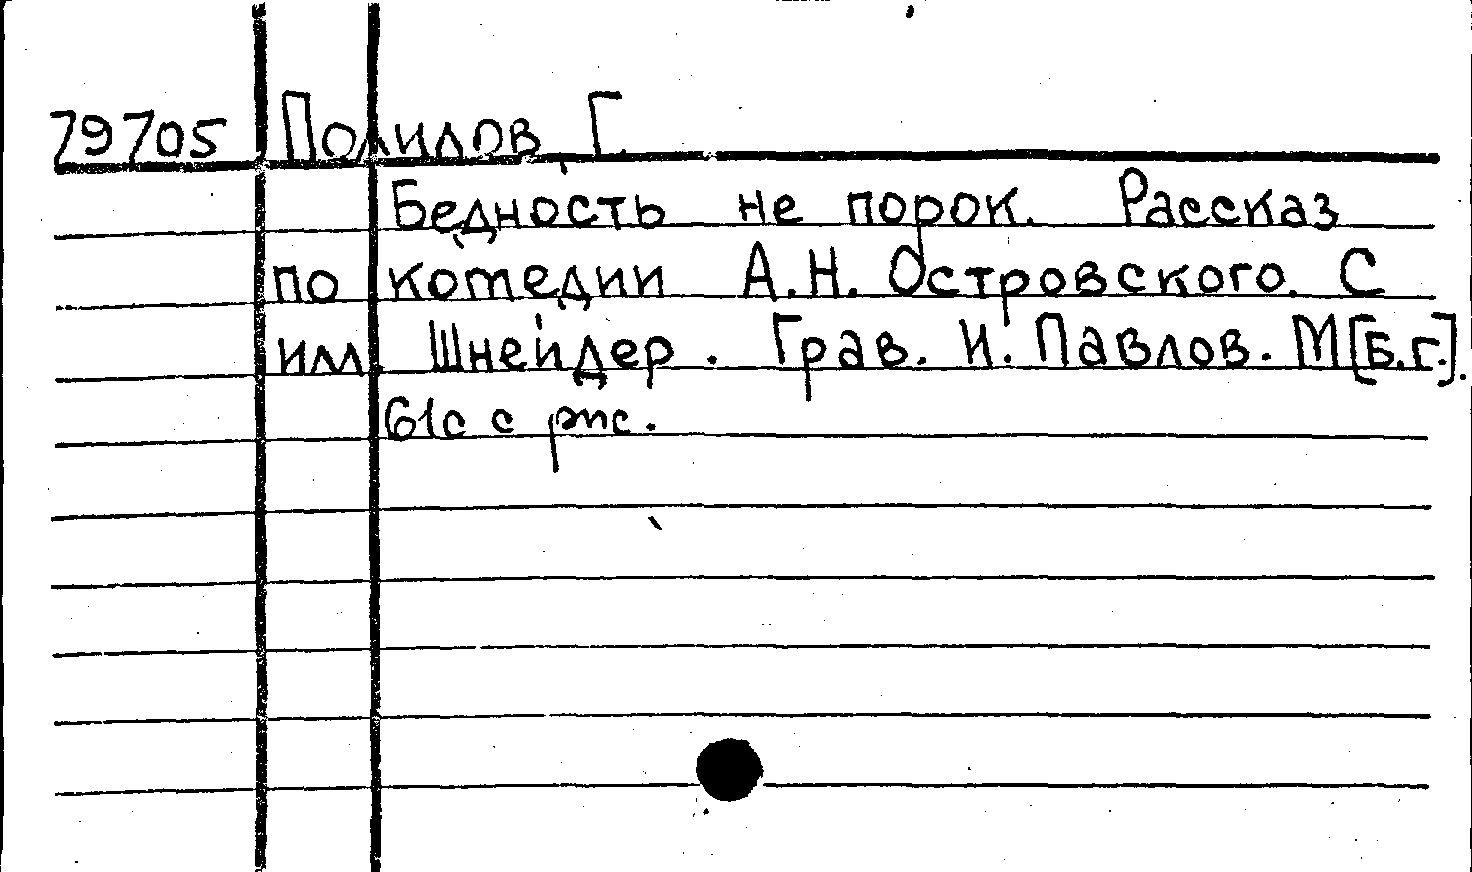 79705 Полидов, Г.
Бедность не порок. Рассказ
по комедии А.Н. Островского. С
илл. Шнейдер. Грав. И. Павлов. М[Б.г.].
61с с рис.